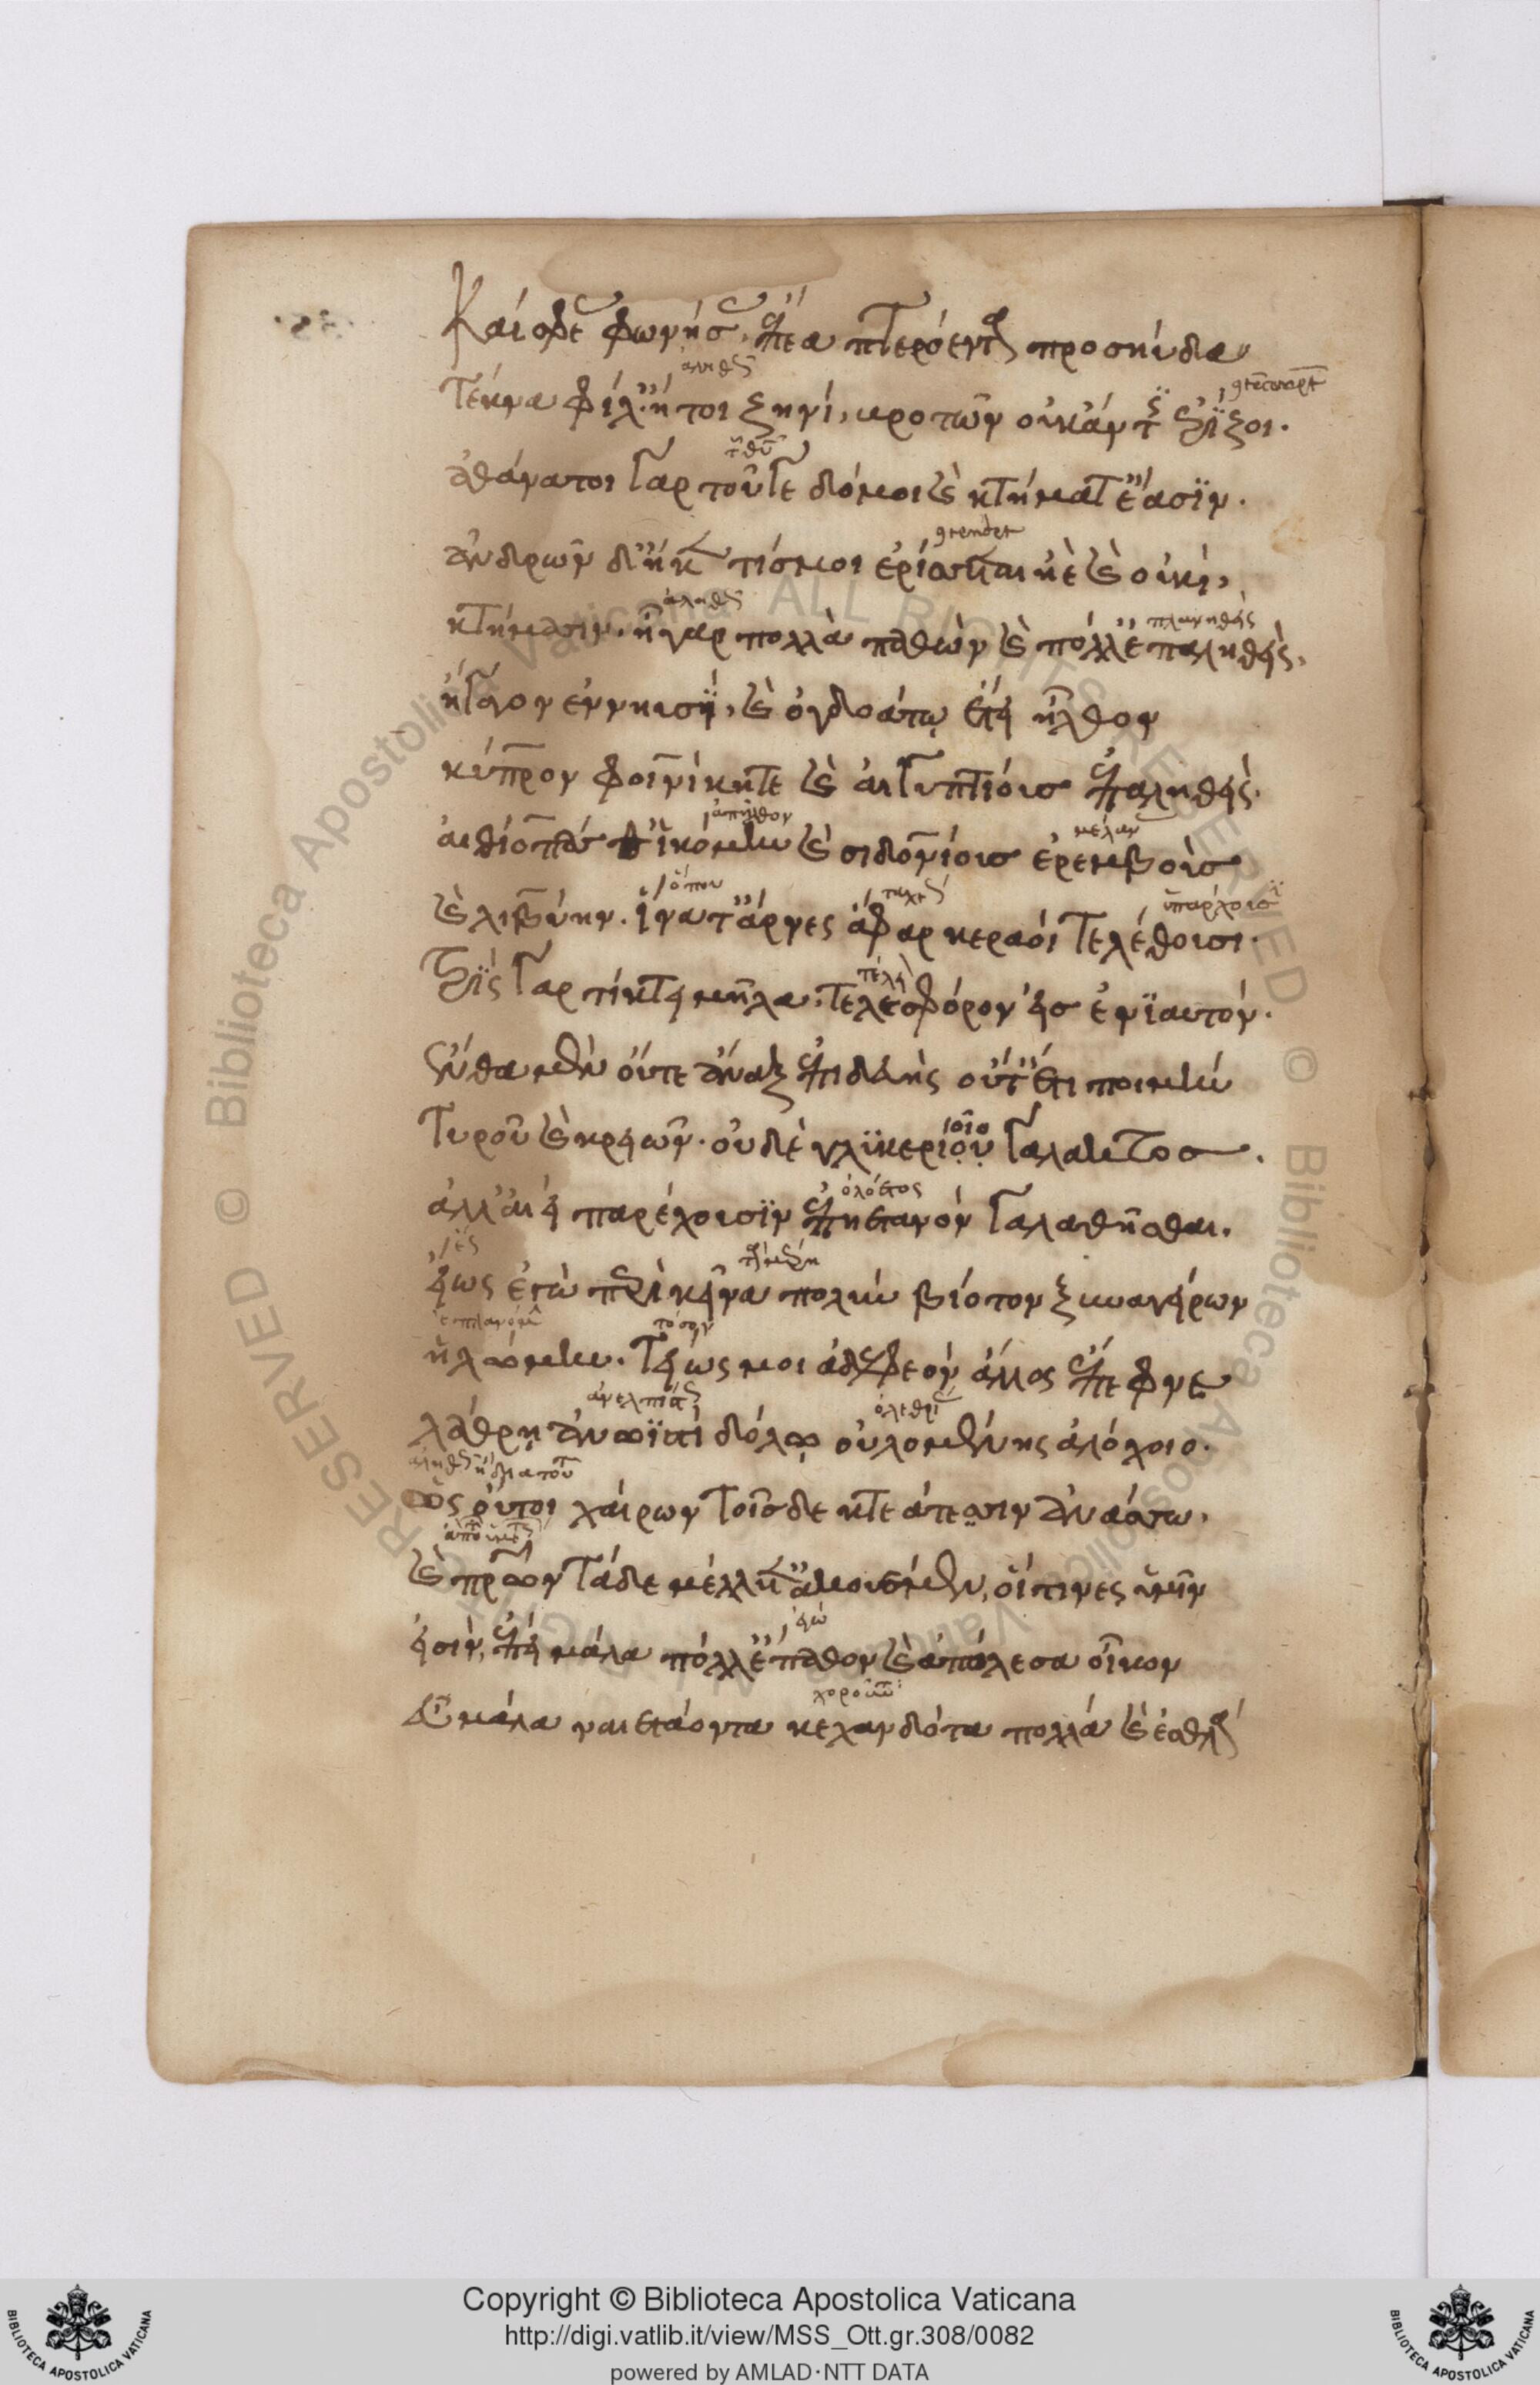 Καί σφε φωνήσας ἔπεα πτερόεντα προσηύδα
ἀληθῶς
Τέκνα φίλ' ἤτοι ζηνὶ, βροτῶν οὐκ ἄν τις ἐρίζοι.
ἀθάνατοι γαρ τοῦγε δόμοι καὶ κτήματ' ἔασϊν.
contendet
ἀνδρῶν δ' ἤ κέν τίς μοι ἐρίσσεται ἠὲ καὶ οὐκὶ,
ἀληθῶς πλανηθεὶς
κτήμασιν. ἦ γαρ πολλὰ παθὼν καὶ πόλλ' ἐπαληθεὶς,
ἠγαγον ἐν νηυσῒ, καὶ ὀγδοάτω ἔτει ἦλθον
κύπρον φοινίκηντε καὶ ἀιγυπτίους ἐπαληθεὶς.
ἀπῆλθον μέλαν
ἀιθίοπάς θ' ἱκόμην καὶ σιδονίους ἐρεμβοὺς
ὅπου ταχέως ὑπάρχουσϊ
καὶ λιβύην. ἵνα τ' ἄρνες ἄφαρ κεραόι τελέθουσι.
τρὶς γαρ τίκτει μῆλα. τελεσφόρον εἰσ ἐνϊαυτόν.
ἔνθα μὲν όυτε ἄναξ ἐπιδευὴς ούτ' ἔτι ποιμὴν
ιοῖο
Τυροῦ καὶ κρειῶν. οὐδὲ γλϋκερίου γάλακτος.
ὁλόετος
ἀλλ' ἀιεὶ παρέχουσϊν ἐπηετανὸν γάλα θῆσθαι.
εἵως ἐγὼ περὶ κεῖνα πολὺν βίοτον ξυναγείρων
τόσον
ἠλώμην. Τείως μοι ἀδελφεὸν ἄλλος ἔπεφνε
λάθρη ἀνωϊστὶ δόλω οὐλομένης ἀλόχοιο.
ὡς ούτοι χαίρων τοῖσδε κτεάτεσσιν ἀνάσσω.
καὶ πατέρων τάδε μέλλετ' ἀκουέμεν, οἵτινες ὑμῖν
εἰσὶν, ἐπεὶ μάλα πόλλ' ἔπαθον καὶ ἀπώλεσα οἶκον
εὖ μάλα ναιετάοντα κεχανδότα πολλά καὶ ἐσθλά
Copyright © Biblioteca Apostolica Vaticana
http://digi.vatlib.it/view/MSS_Ott.gr.308/0082
powered by AMLAD·NTT DATA